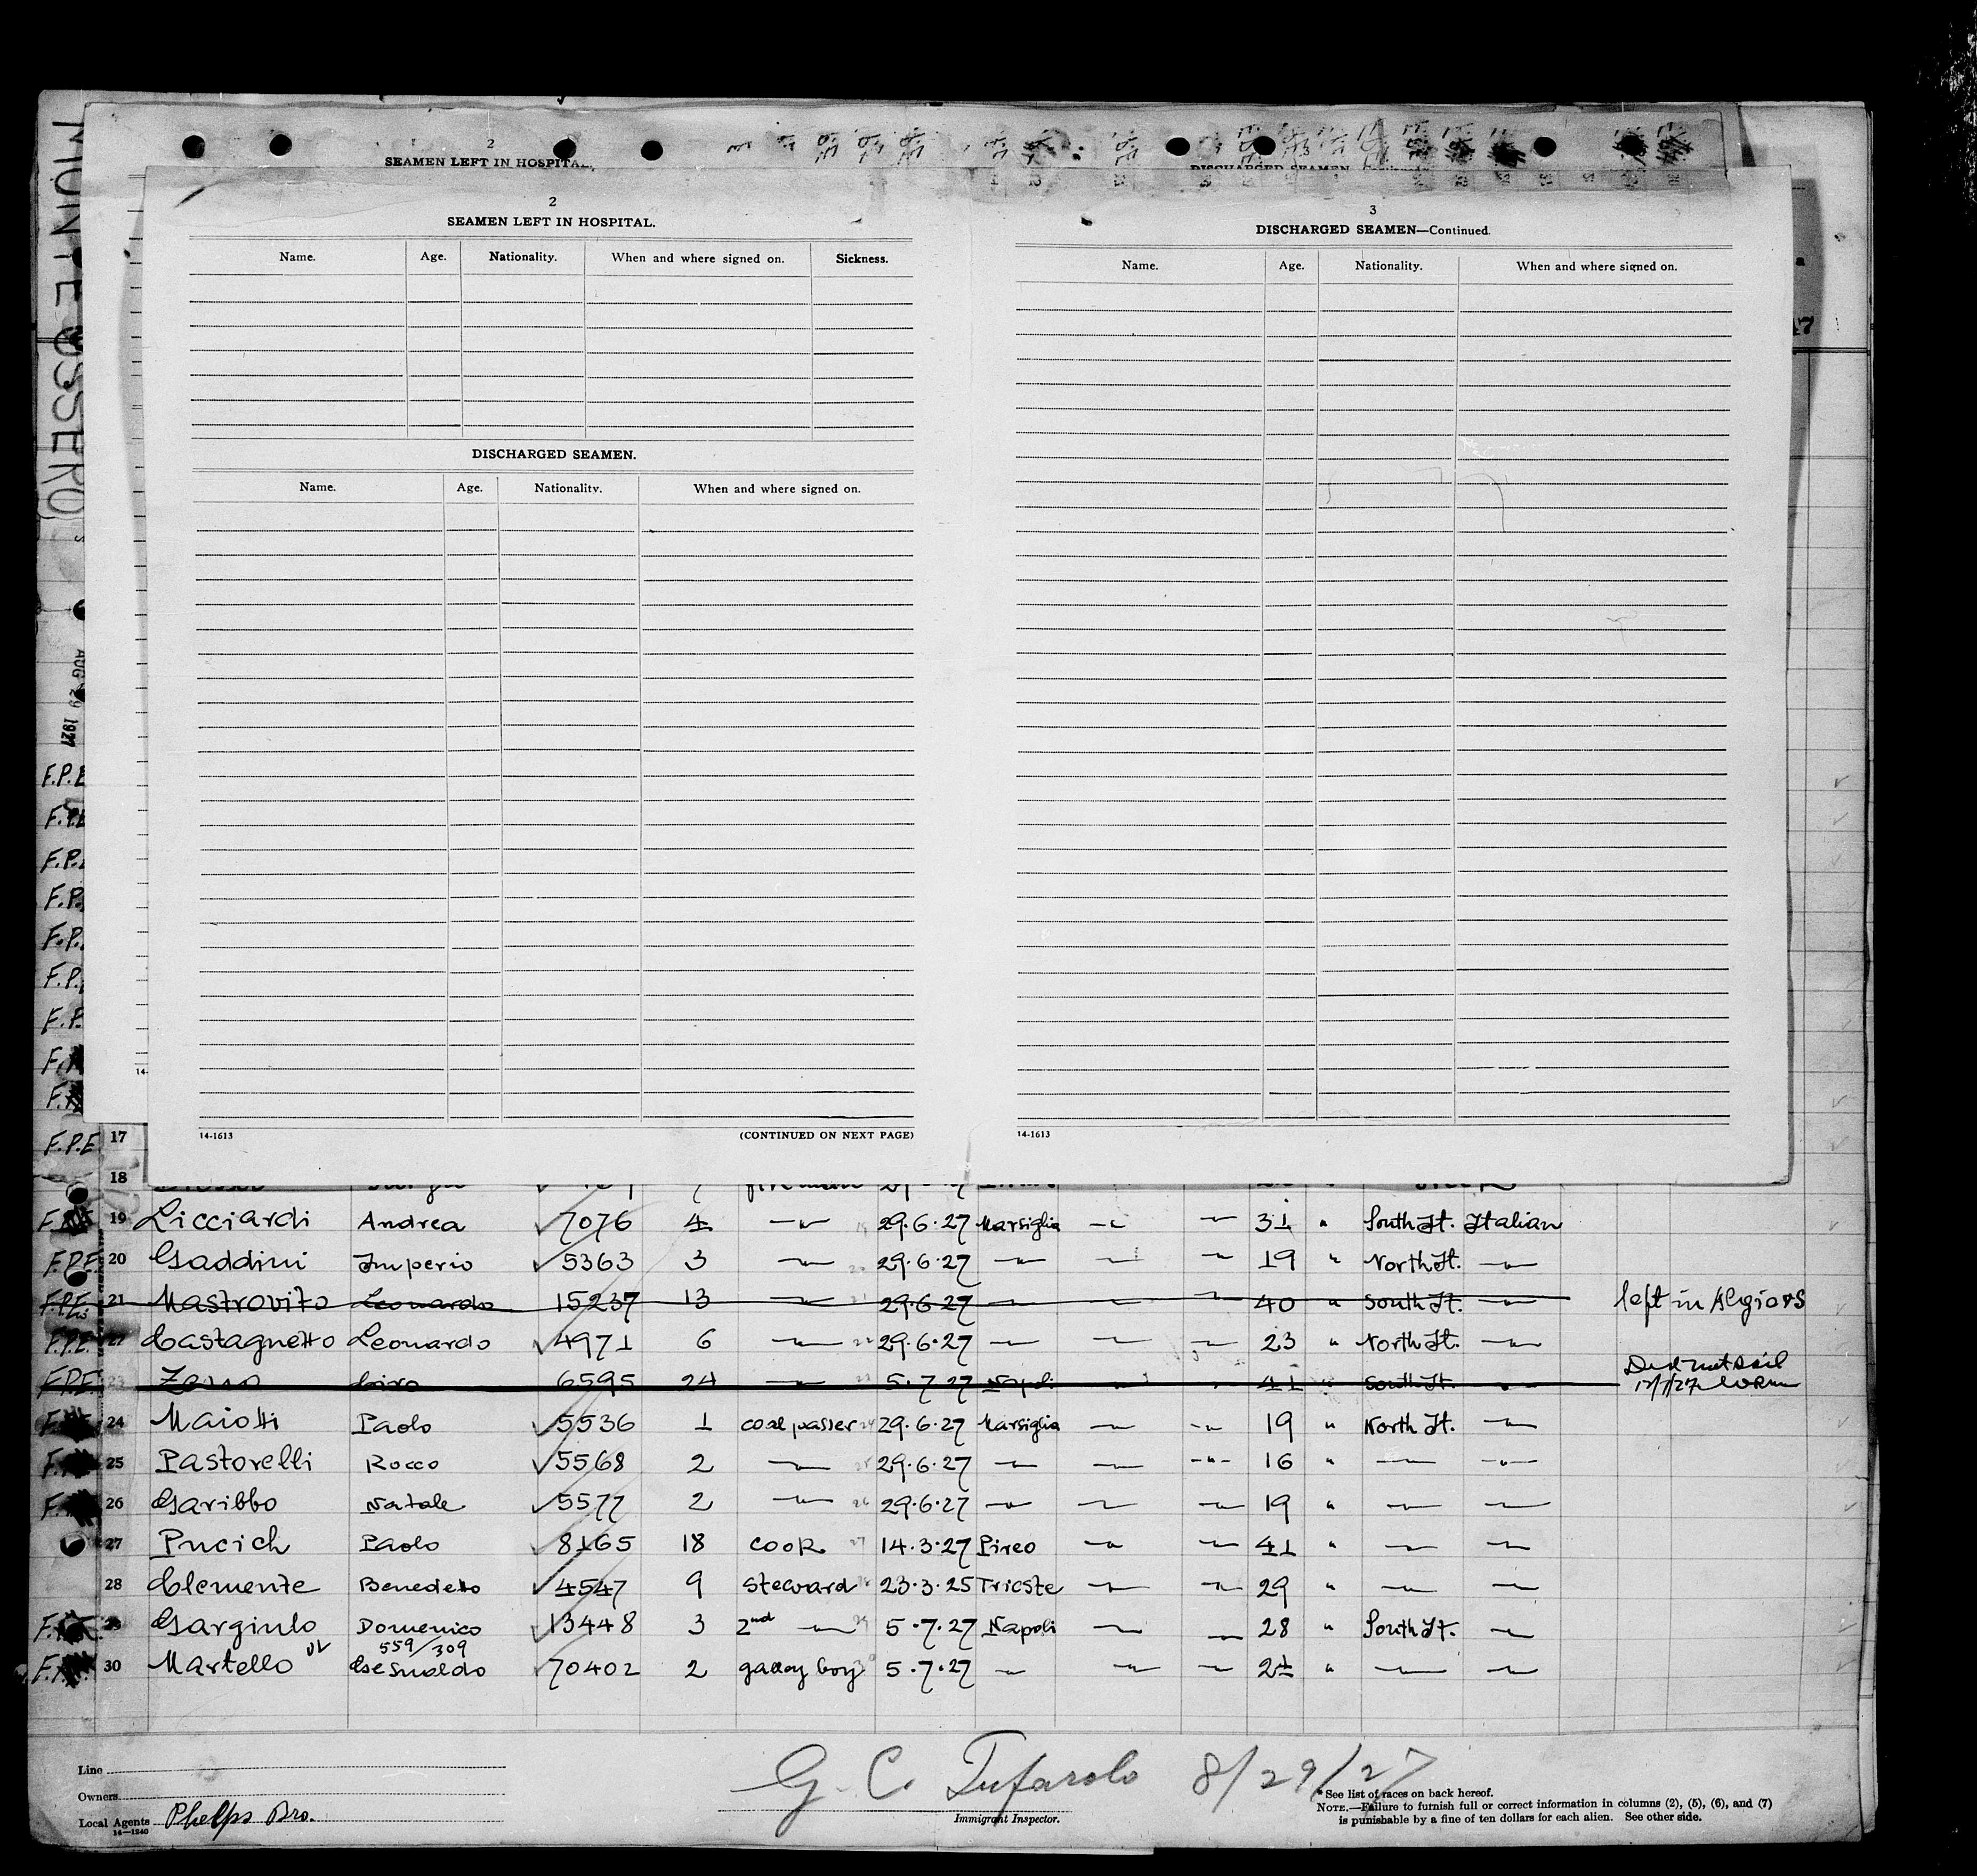 MONTE OSSERO
AUG 29 1927
2
SEAMEN LEFT IN HOSPITAL.
DISCHARGED SEAMEN
2
SEAMEN LEFT IN HOSPITAL.
Name. Age. Nationality. When and where signed on. Sickness.
DISCHARGED SEAMEN.
Name. Age. Nationality. When and where signed on.
14-1613 (CONTINUED ON NEXT PAGE)
3
DISCHARGED SEAMEN—Continued.
Name. Age. Nationality. When and where signed on.
14-1613
F.P.E
F.P.E
F.P.
F.P.
F.P.
F.P.
F.P.
F.P.E. 17
18
19 Licciardi Andrea 7076 4 —"— 29.6.27 Marsiglia —"— —"— 31 " South It. Italian
F.P.E. 20 Gaddini Imperio 5363 3 —"— 29.6.27 —"— —"— —"— 19 " North It. —"—
F.P.E. 21 Mastrovito Leonardo 15237 13 —"— 29.6.27 —"— —"— —"— 40 " South It. —"— left in Algiers
F.P.E. 22 Castagnetto Leonardo 4971 6 —"— 29.6.27 —"— —"— —"— 23 " North It. —"—
F.P.E. 23 Zeno Ciro 6595 24 —"— 5.7.27 Napoli —"— —"— 41 " South It. —"— Did not sail
24 Maiotti Paolo 5536 1 coal passer 29.6.27 Marsiglia —"— —"— 19 " North It. —"—
25 Pastorelli Rocco 5568 2 —"— 29.6.27 —"— —"— —"— 16 " —"— —"—
26 Garibbo Natale 5577 2 —"— 29.6.27 —"— —"— —"— 19 " —"— —"—
27 Pucich Paolo 8165 18 cook 14.3.27 Pireo —"— —"— 41 " —"— —"—
28 Clemente Benedetto 4547 9 Steward 23.3.25 Trieste —"— —"— 29 " —"— —"—
29 Gargiulo Domenico 13448 3 2nd —"— 5.7.27 Napoli —"— —"— 28 " South It. —"—
559/309
30 Martello Gesualdo 70402 2 galley boy 5.7.27 —"— —"— —"— 21 " —"— —"—
Line
Owners
Local Agents Phelps Bro.
14—1240
G. C. Tufarolo 8/29/27
Immigrant Inspector.
* See list of races on back hereof.
NOTE.—Failure to furnish full or correct information in columns (2), (5), (6), and (7)
is punishable by a fine of ten dollars for each alien. See other side.